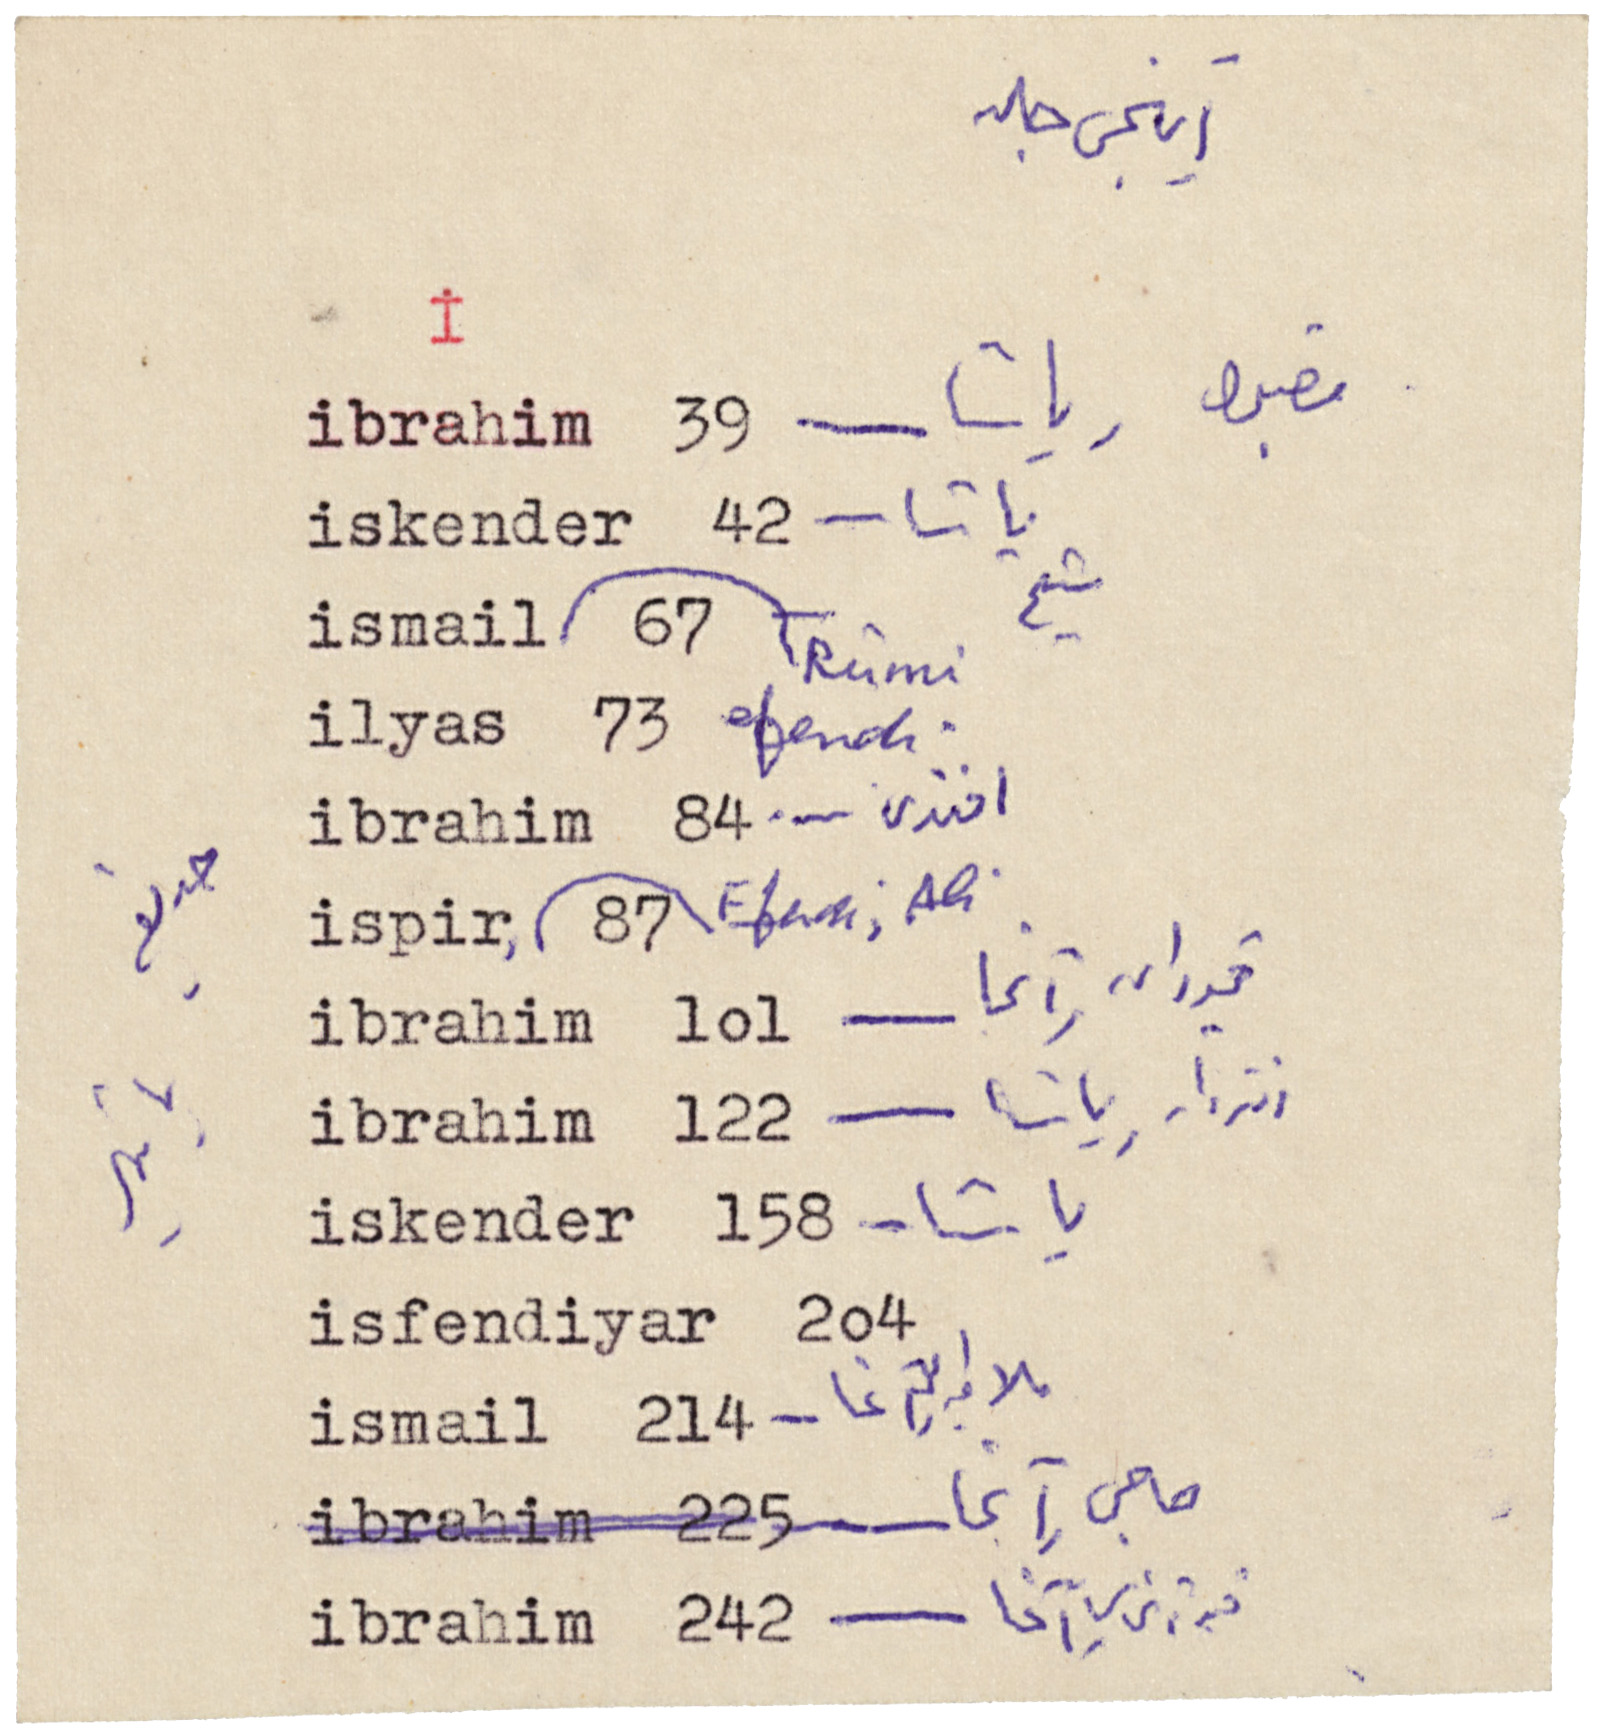 ایکنجی جلد
İ
ibrahim 39 — پاشا
iskender 42 — پاشا
شیخ
ismail 67 Rûmi
ilyas 73 efendi
ibrahim 84 — افندی
ispir, 87 Efendi, Ali
ibrahim lol — آغا
ibrahim 122 — پاشا
iskender 158 — پاشا
isfendiyar 2o4
ismail 214 — ملا آغا
ibrahim 225 — حاجی آغا
ibrahim 242 — آغا